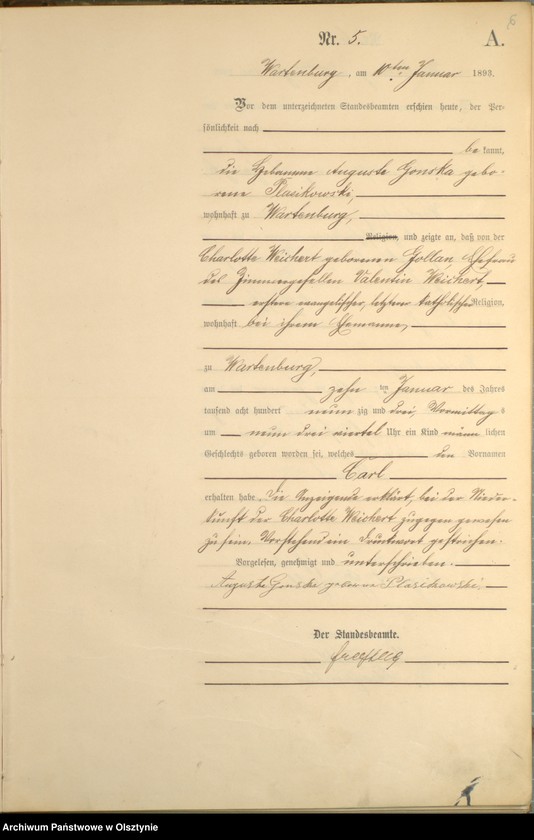 6
Nr. 5.
A.
Wartenburg, am 10ten Januar 1893.
Vor dem unterzeichneten Standesbeamten erschien heute, der Per-
sönlichkeit nach
be kannt,
die Hebamme Auguste Gonska gebo-
rene Plasikowski,
wohnhaft zu Wartenburg,
Religion, und zeigte an, daß von der
Charlotte Weichert geborenen Gollan, Ehefrau
des Zimmergesellen Valentin Weichert,
erstere evangelischer, letzterer katholischer Religion,
wohnhaft bei ihrem Ehemanne,
zu Wartenburg,
am zehn ten Januar des Jahres
tausend acht hundert neun zig und drei, Vormittag s
um neun drei viertel Uhr ein Kind männ lichen
Geschlechts geboren worden sei, welches den Vornamen
Carl
erhalten habe. Die Anzeigende erklärt, bei der Nieder-
kunft der Charlotte Weichert zugegen gewesen
zu sein. Vorstehend ein Druckwort gestrichen.
Vorgelesen, genehmigt und unterschrieben.
Auguste Gonska geborene Plasikowski
Der Standesbeamte.
Archiwum Państwowe w Olsztynie